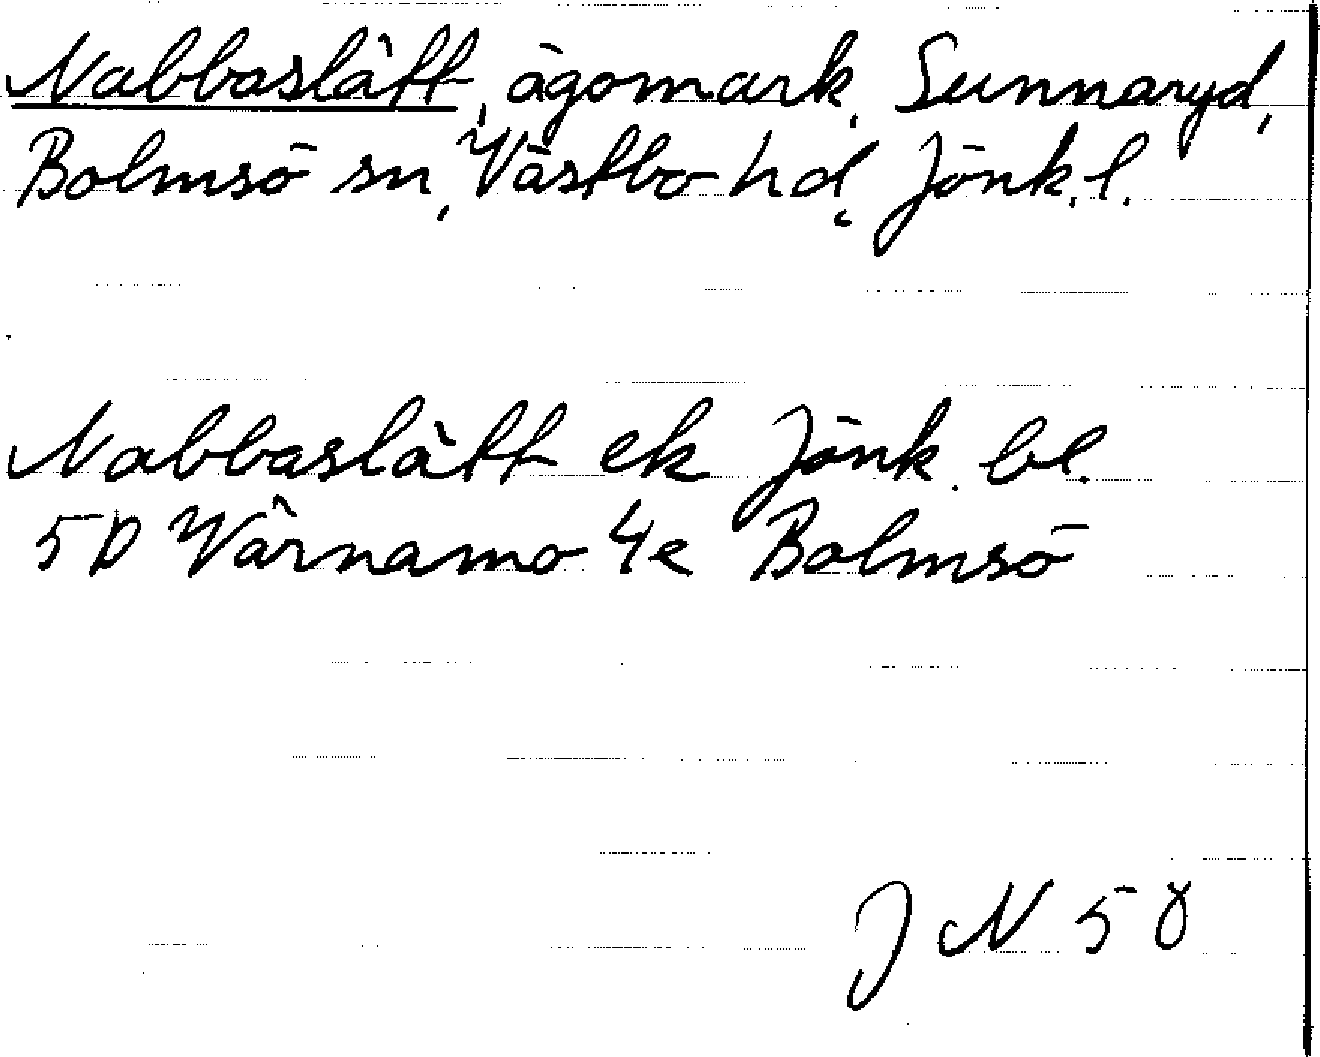 Nabbaslätt, ägomark, Sunnaryd,
Bolmsö sn, Västbo hd, Jönk. l.
Nabbaslätt ek Jönk. bl.
5D Värnamo 4e Bolmsö
J N 58